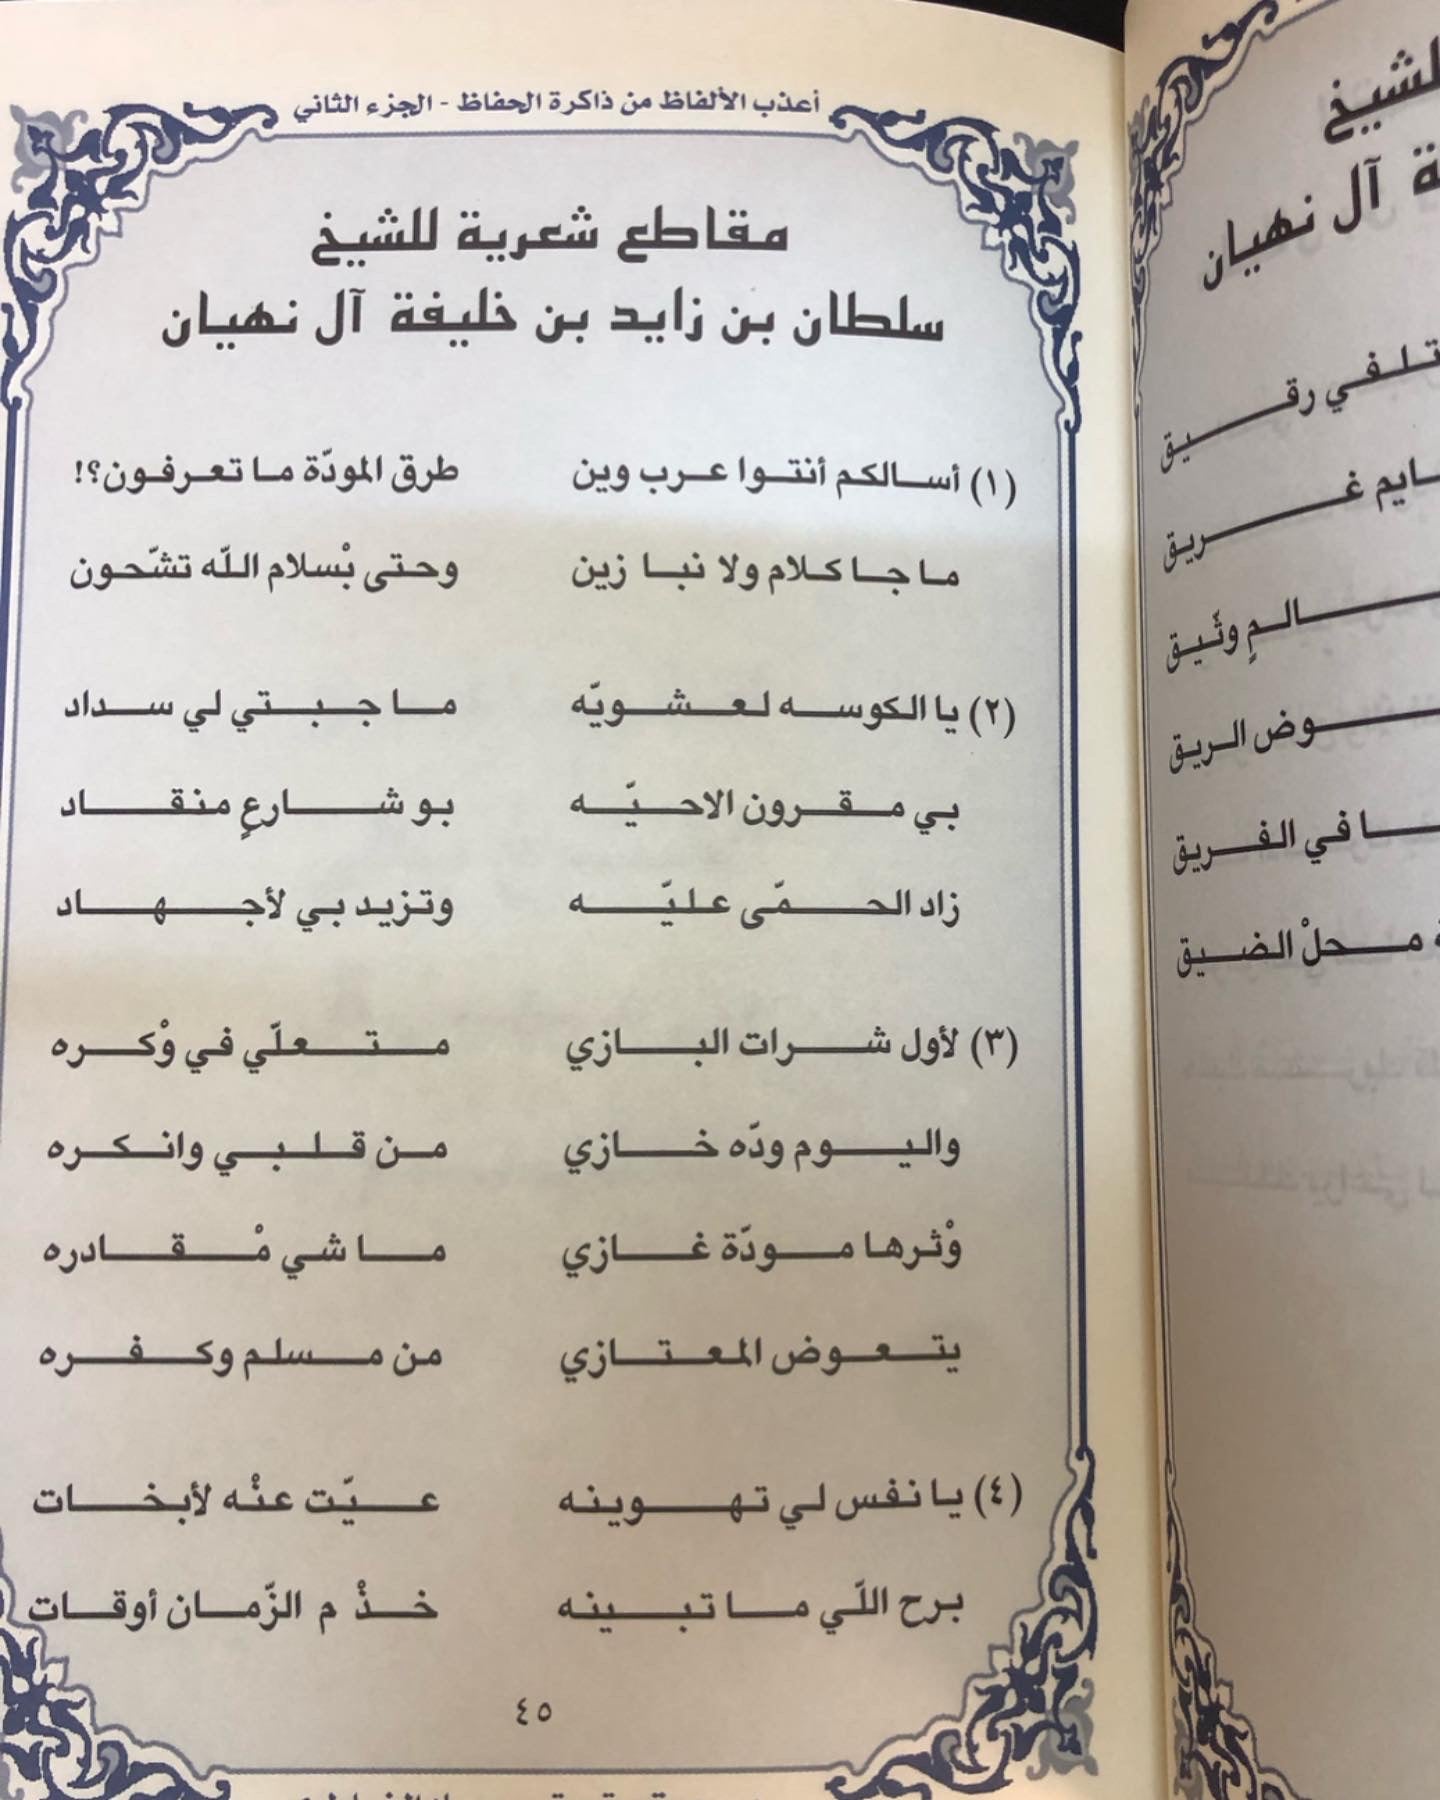 أعذب الألفاظ من ذاكرة الحفاظ - الجزء الثاني
مقاطع شعرية للشيخ
سلطان بن زايد بن خليفة آل نهيان
(١) أسالكم أنتوا عرب وين طرق المودّة ما تعرفون؟!
ما جا كلام ولا نبا زين وحتى بْسلام اللّه تشّحون
(٢) يا الكوسه لعشويّه ما جبتي لي سداد
بي مقرون الاحيّه بو شارعٍ منقاد
زاد الحمّى عليّه وتزيد بي لأجهاد
(٣) لأول شرات البازي متعلّي في وْكره
واليوم ودّه خازي من قلبي وانكره
وْثرها مودّة غازي ما شي مْقادره
يتعوض المعتازي من مسلم وكفره
(٤) يا نفس لي تهوينه عيّت عنْه لأبخات
برح اللّي ما تبينه خذْ م الزّمان أوقات
٤٥
للشيخ
آل نهيان
تلفي رقيق
غريق
وثّيق
الريق
في الفريق
محلْ الضيق